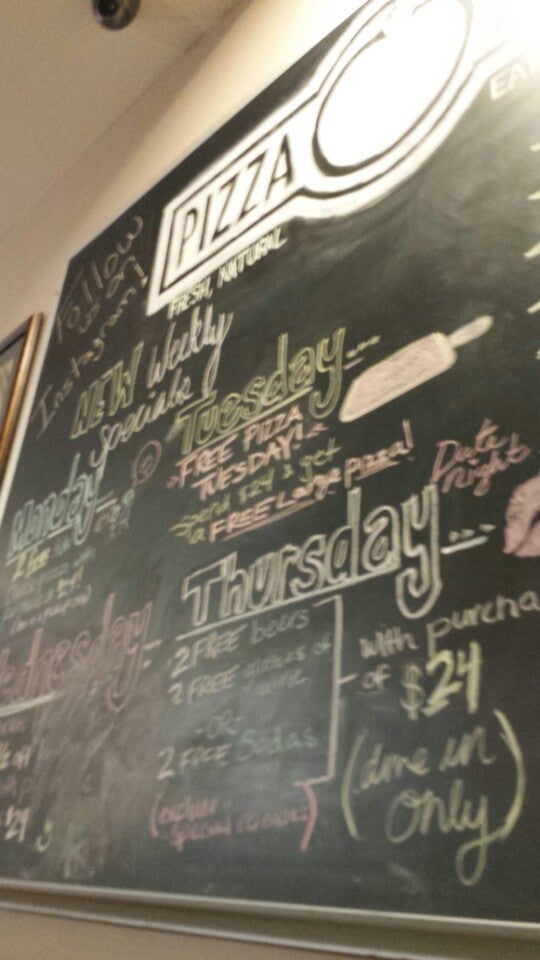 PIZZA
FRESH, NATURAL
EA
Follow
us on
Instagram!
NEW Weekly
Specials
Tuesday...
FREE PIZZA
TUESDAY!
Spend $24 & get
a FREE Large pizza!
Monday...
2 free
Date
night
Thursday...
2 FREE beers
2 FREE glasses of
wine
-OR-
2 FREE Sodas
with purcha
of $24
(dine in
only)
ednesday...
off
$24